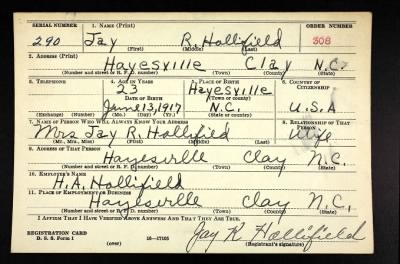 SERIAL NUMBER 1. NAME (Print) ORDER NUMBER
290 Jay R. Hollifield 308
(First) (Middle) (Last)
2. ADDRESS (Print)
Hayesville Clay N.C.
(Number and street or R. F. D. number) (Town) (County) (State)
3. TELEPHONE 4. AGE IN YEARS 5. PLACE OF BIRTH 6. COUNTRY OF CITIZENSHIP
23 Hayesville
DATE OF BIRTH (Town or county)
June 13, 1917 N.C. U.S.A
(Exchange) (Number) (Mo.) (Day) (Yr.) (State or country)
7. NAME OF PERSON WHO WILL ALWAYS KNOW YOUR ADDRESS 8. RELATIONSHIP OF THAT PERSON
Mrs Jay R. Hollifield Wife
(Mr., Mrs., Miss) (First) (Middle) (Last)
9. ADDRESS OF THAT PERSON
Hayesville Clay N.C.
(Number and street or R. F. D. number) (Town) (County) (State)
10. EMPLOYER'S NAME
H.A. Hollifield
11. PLACE OF EMPLOYMENT OR BUSINESS
Hayesville Clay N.C.
(Number and street or R. F. D. number) (Town) (County) (State)
I AFFIRM THAT I HAVE VERIFIED ABOVE ANSWERS AND THAT THEY ARE TRUE.
REGISTRATION CARD Jay R Hollifield
D. S. S. Form 1 (over) 16—17105 (Registrant's signature)